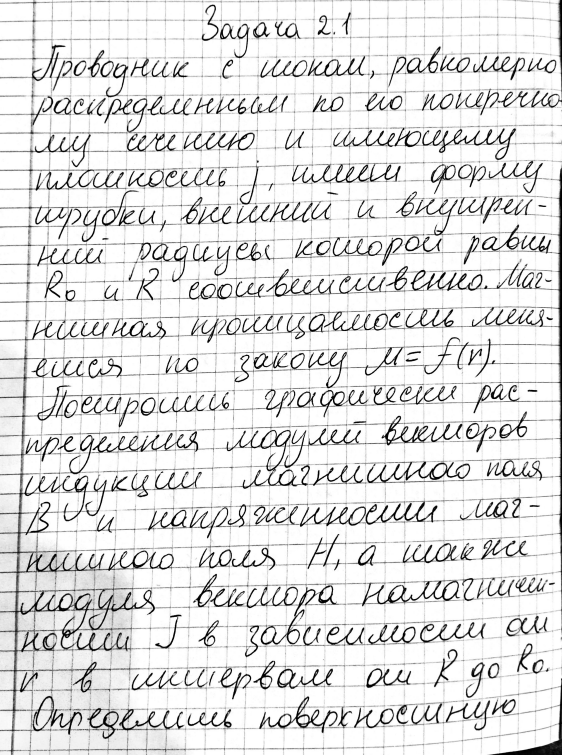 Задача 2.1
Проводник с током, равномерно
распределенным по его поперечно-
му сечению и имеющему
плотность j, имеет форму
трубки, внешний и внутрен-
ний радиусы которой равны
R₀ и R соответственно. Маг-
нитная проницаемость меня-
ется по закону μ = f(r).
Построить графически рас-
пределения модулей векторов
индукции магнитного поля
B и напряженности маг-
нитного поля H, а также
модуля вектора намагничен-
ности J в зависимости от
r в интервале от R до R₀.
Определить поверхностную